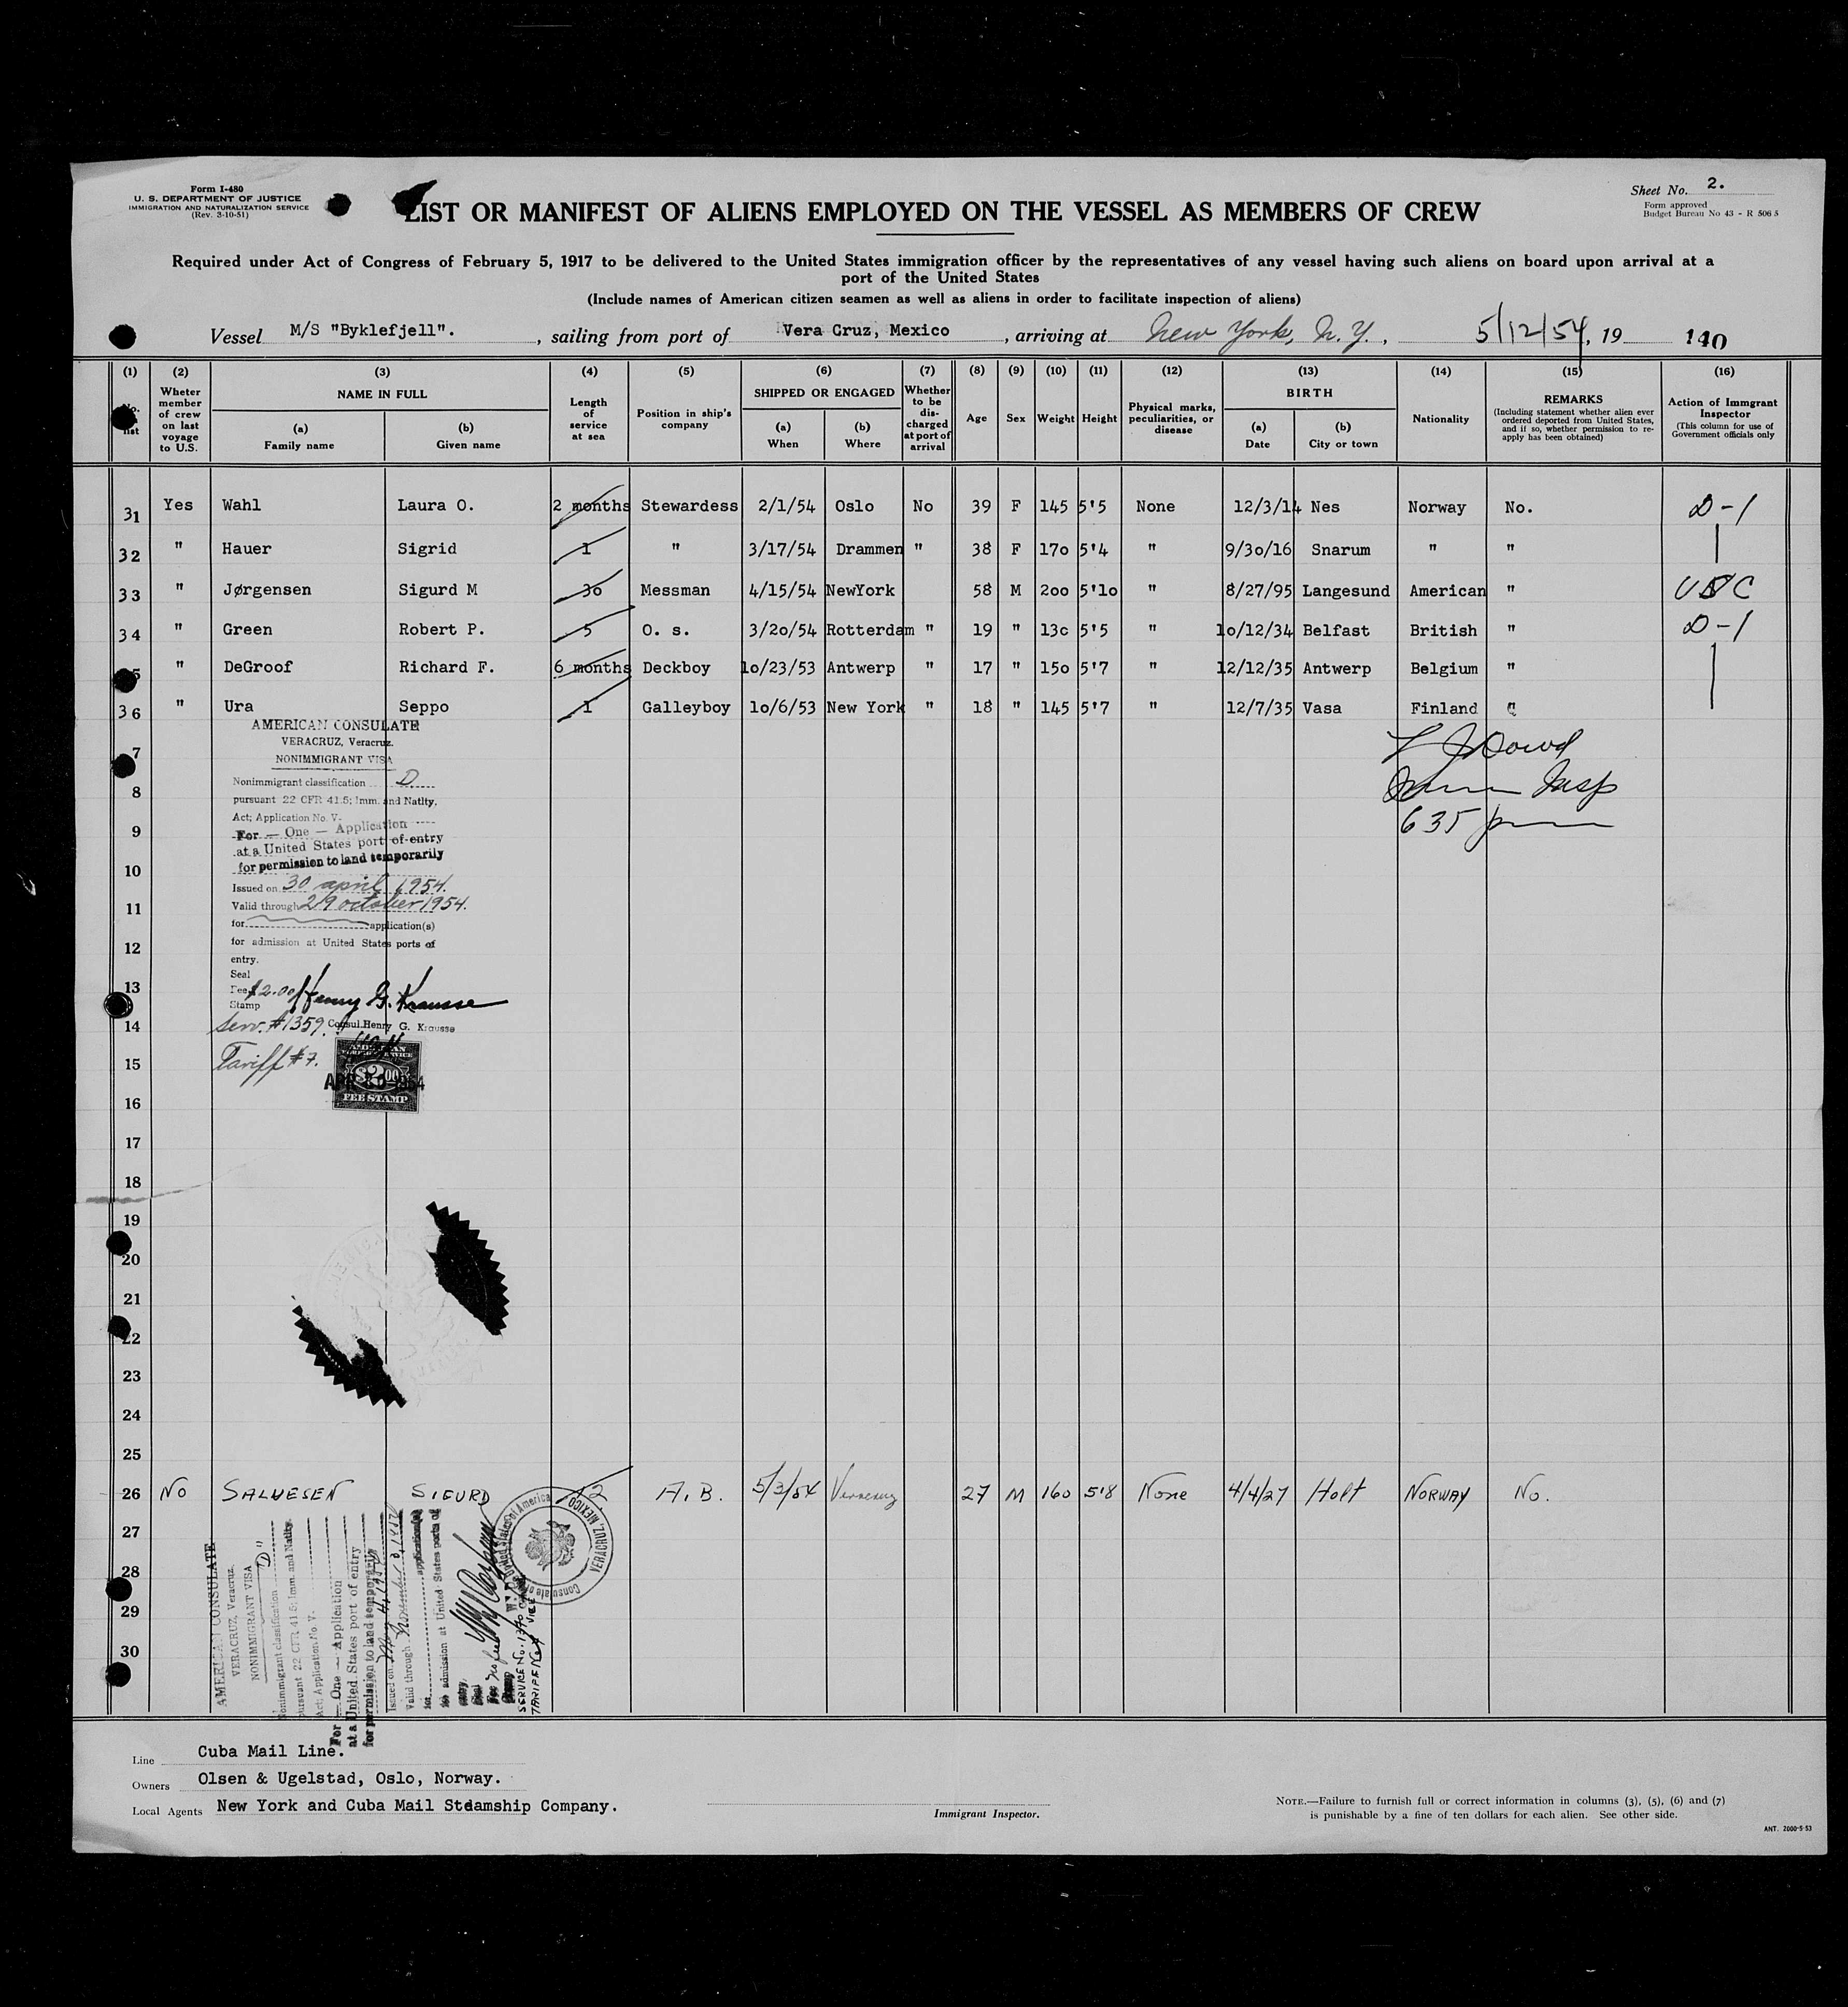 Form I-480
U. S. DEPARTMENT OF JUSTICE
IMMIGRATION AND NATURALIZATION SERVICE
(Rev. 3-10-51)
Sheet No. 2.
Form approved
Budget Bureau No 43 - R 506 5
LIST OR MANIFEST OF ALIENS EMPLOYED ON THE VESSEL AS MEMBERS OF CREW
Required under Act of Congress of February 5, 1917 to be delivered to the United States immigration officer by the representatives of any vessel having such aliens on board upon arrival at a
port of the United States
(Include names of American citizen seamen as well as aliens in order to facilitate inspection of aliens)
Vessel M/S "Byklefjell". , sailing from port of Vera Cruz, Mexico , arriving at New York, N.Y. , 5/12/54, 19 140
(1) (2) (3) (4) (5) (6) (7) (8) (9) (10) (11) (12) (13) (14) (15) (16)
No. list
Wheter member of crew on last voyage to U.S.
NAME IN FULL
(a) Family name
(b) Given name
Length of service at sea
Position in ship's company
SHIPPED OR ENGAGED
(a) When
(b) Where
Whether to be dis- charged at port of arrival
Age
Sex
Weight
Height
Physical marks, peculiarities, or disease
BIRTH
(a) Date
(b) City or town
Nationality
REMARKS
(Including statement whether alien ever ordered deported from United States, and if so, whether permission to re- apply has been obtained)
Action of Immigrant Inspector
(This column for use of Government officials only
31 Yes Wahl Laura O. 2 months Stewardess 2/1/54 Oslo No 39 F 145 5'5 None 12/3/14 Nes Norway No. D-1
32 " Hauer Sigrid 1 " 3/17/54 Drammen " 38 F 17o 5'4 " 9/3o/16 Snarum " "
33 " Jørgensen Sigurd M 3o Messman 4/15/54 NewYork 58 M 2oo 5'1o " 8/27/95 Langesund American " USC
34 " Green Robert P. 5 O. s. 3/2o/54 Rotterdam " 19 " 13c 5'5 " 1o/12/34 Belfast British " D-1
5 " DeGroof Richard F. 6 months Deckboy 1o/23/53 Antwerp " 17 " 15o 5'7 " 12/12/35 Antwerp Belgium "
36 " Ura Seppo 1 Galleyboy 1o/6/53 New York " 18 " 145 5'7 " 12/7/35 Vasa Finland "
AMERICAN CONSULATE
VERACRUZ, Veracruz.
NONIMMIGRANT VISA
Nonimmigrant classification D
pursuant 22 CFR 41.5; Imm. and Natlty,
Act; Application No. V-
For — One — Application
at a United States port of entry
for permission to land temporarily
Issued on 30 april 1954.
Valid through 29 october 1954.
for application(s)
for admission at United States ports of
entry.
Seal
Fee $2.00 Henry G. Krausse
Stamp
Serv. #1359. Consul. Henry G. Krausse
Tariff #7.
AMERICAN
$2.00
FEE STAMP
APR 30 1954
Insp
635 pm
7
8
9
10
11
12
13
14
15
16
17
18
19
20
21
22
23
24
25
26 No SALVESEN SIGURD 12 A.B. 5/3/54 Veracruz 27 M 160 5'8 None 4/4/27 Holt NORWAY No.
27
28
29
30
AMERICAN CONSULATE
VERACRUZ, Veracruz.
NONIMMIGRANT VISA
Nonimmigrant classification "D"
pursuant 22 CFR 41.5; Imm. and Natlty.
Act; Application No V.
For — One — Application
at a United States port of entry
for permission to land temporarily
Issued on May 4, 1954
Valid through November 3, 1954
for application(s)
for admission at United States ports of
entry.
Seal
Fee No fee
Stamp
SERVICE No.
TARIFF No
Consulate of the United States of America
VERACRUZ, MEXICO
Line Cuba Mail Line.
Owners Olsen & Ugelstad, Oslo, Norway.
Local Agents New York and Cuba Mail Steamship Company.
Immigrant Inspector.
NOTE.—Failure to furnish full or correct information in columns (3), (5), (6) and (7)
is punishable by a fine of ten dollars for each alien. See other side.
ANT. 2000-5-53